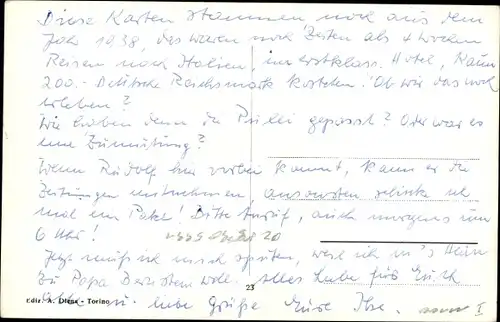 Diese Karten stammen noch aus dem
Jahr 1938, das waren noch Zeiten als 4 Wochen
Reisen nach Italien, im erstklass. Hotel, kaum
200.- Deutsche Reichsmark kosteten! Ob wir das noch
erleben?
Wie haben denn die Pulli gepasst? Oder war es
eine Zumutung?
Wenn Rudolf hier vorbei kommt, kann er die
Zeitungen mitnehmen, ansonsten schicke ich
mal ein Paket! Bitte Anruf, auch morgens um
6 Uhr!
Jetzt muß ich mich sputen, weil ich in's Heim
zu Papa Bernstein will. Alles Liebe für Euch
u. liebe Grüße Eure Ilse.
23
Ediz. A. Diena - Torino